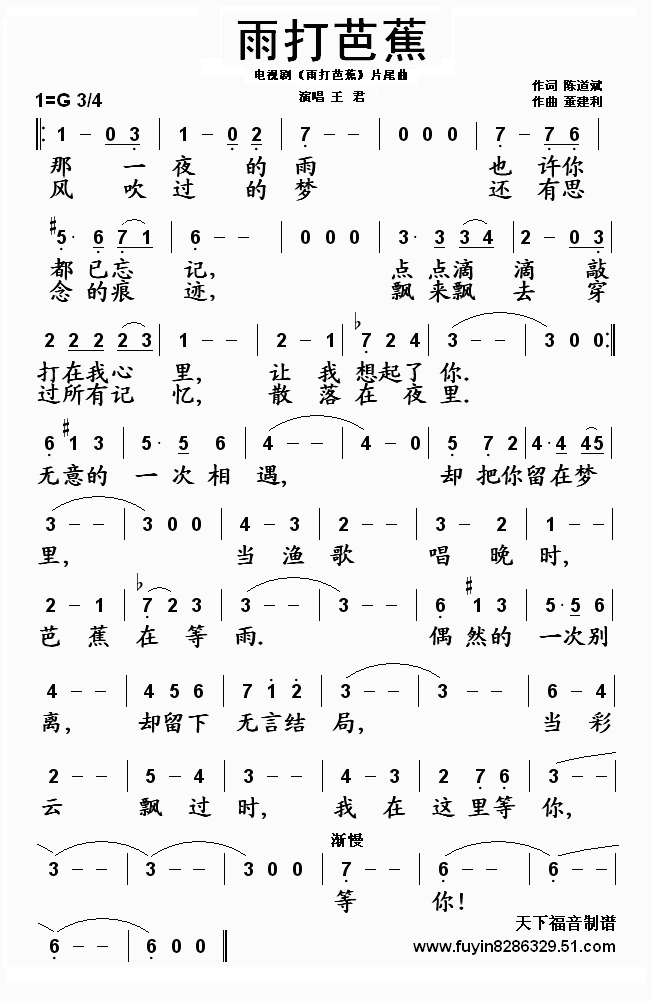 雨打芭蕉
电视剧《雨打芭蕉》片尾曲
作词 陈道斌
1=G 3/4
演唱 王 君
作曲 董建利
1 - 0 3 | 1 - 0 2 | 7 - - | 0 0 0 | 7 - 7 6
那 一 夜 的 雨 也 许你
风 吹 过 的 梦 还 有思
#5· 6 7 1 | 6 - - | 0 0 0 | 3· 3 3 4 | 2 - 0 3
都 已忘 记, 点 点滴 滴 敲
念 的痕 迹, 飘 来飘 去 穿
2 2 2 2 2 3 | 1 - - | 2 - 1 | b7 2 4 | 3 - - | 3 0 0 :||
打在我心 里, 让 我 想起了 你.
过所有记 忆, 散 落 在 夜 里.
6 #1 3 | 5· 5 6 | 4 - - | 4 - 0 | 5 7 2 | 4· 4 4 5
无意的 一 次 相 遇, 却 把你 留在梦
3 - - | 3 0 0 | 4 - 3 | 2 - - | 3 - 2 | 1 - -
里, 当 渔 歌 唱 晚 时,
2 - 1 | b7 2 3 | 3 - - | 3 - - | 6 #1 3 | 5· 5 6
芭 蕉 在 等 雨. 偶 然的 一次别
4 - - | 4 5 6 | 7 1 2 | 3 - - | 3 - - | 6 - 4
离, 却留下 无言结 局, 当 彩
2 - - | 5 - 4 | 3 - - | 4 - 3 | 2 7 6 | 3 - -
云 飘 过 时, 我 在 这 里等 你,
渐慢
3 - - | 3 - - | 3 0 0 | 7 - - | 6 - - | 6 - -
等 你!
天下福音制谱
6 - - | 6 0 0 ||
www.fuyin8286329.51.com